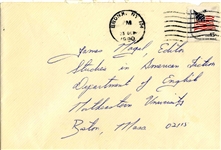 BRONX, NY 104
PM
1980
James Nagel, Editor
Studies in American Fiction
Department of English
Northeastern University
Boston, Mass 02115